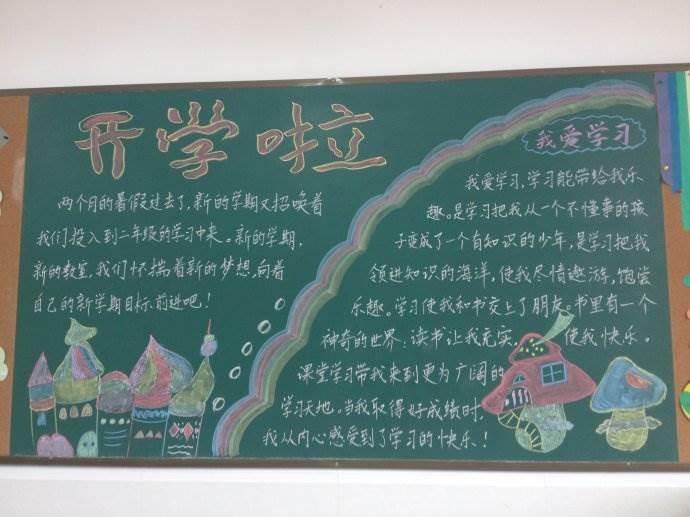 开学啦
两个月的暑假过去了,新的学期又招唤着
我们投入到二年级的学习中来。新的学期,
新的教室,我们怀揣着新的梦想,向着
自己的新学期目标,前进吧!
我爱学习
我爱学习,学习能带给我乐
趣。是学习把我从一个不懂事的孩
子变成了一个有知识的少年,是学习把我
领进知识的海洋,使我尽情遨游,饱尝
乐趣。学习使我和书交上了朋友。书里有一个
神奇的世界:读书让我充实。使我快乐。
课堂学习带我来到更为广阔的
学习天地。当我取得好成绩时,
我从内心感受到了学习的快乐!